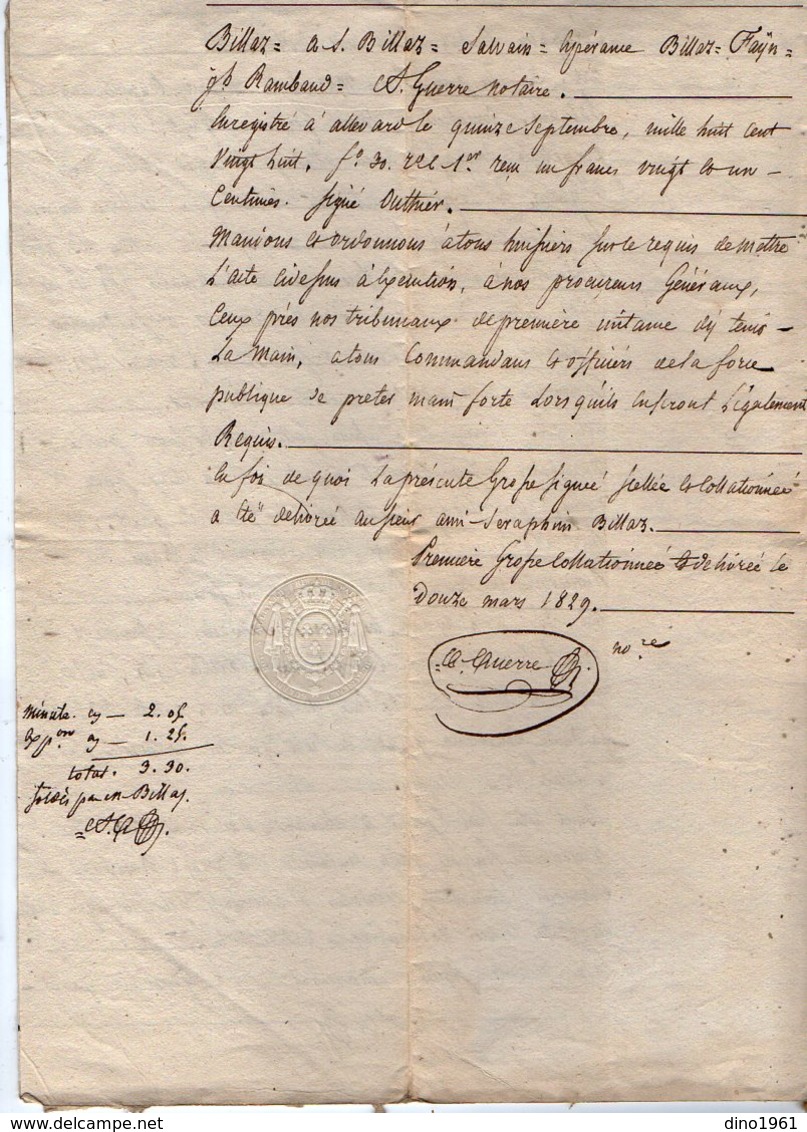 Billaz = a S. Billaz = Salvain = Espérance Billaz = Faÿn =
jh Rambaud = A. Guerre notaire.
Enregistré à allevard le quinze septembre, mille huit cent
Vingt huit. fo 30. 1er. reçu un franc vingt et un
Centimes. Signé Outhier.
Mandons et ordonnons à tous huissiers sur le requis de mettre
L'acte ci dessus à Exécution, à nos procureurs Généraux,
Ceux près nos tribunaux de première instance d'y tenir
La Main, a tous Commandans et officiers de la force
publique de preter main forte Lorsqu'ils en seront Légalement
Requis.
En foi de quoi La présente Grosse signeé scellée et Collationneé
a été délivrée au sieur ami-Seraphin Billaz.
Première Grosse Collationneé et délivrée le
Douze mars 1829.
A. Guerre nore
Minute. cy — 2. 05
Expon cy — 1. 25.
total. 3. 30.
soldés par mr Billaz.
dino1961